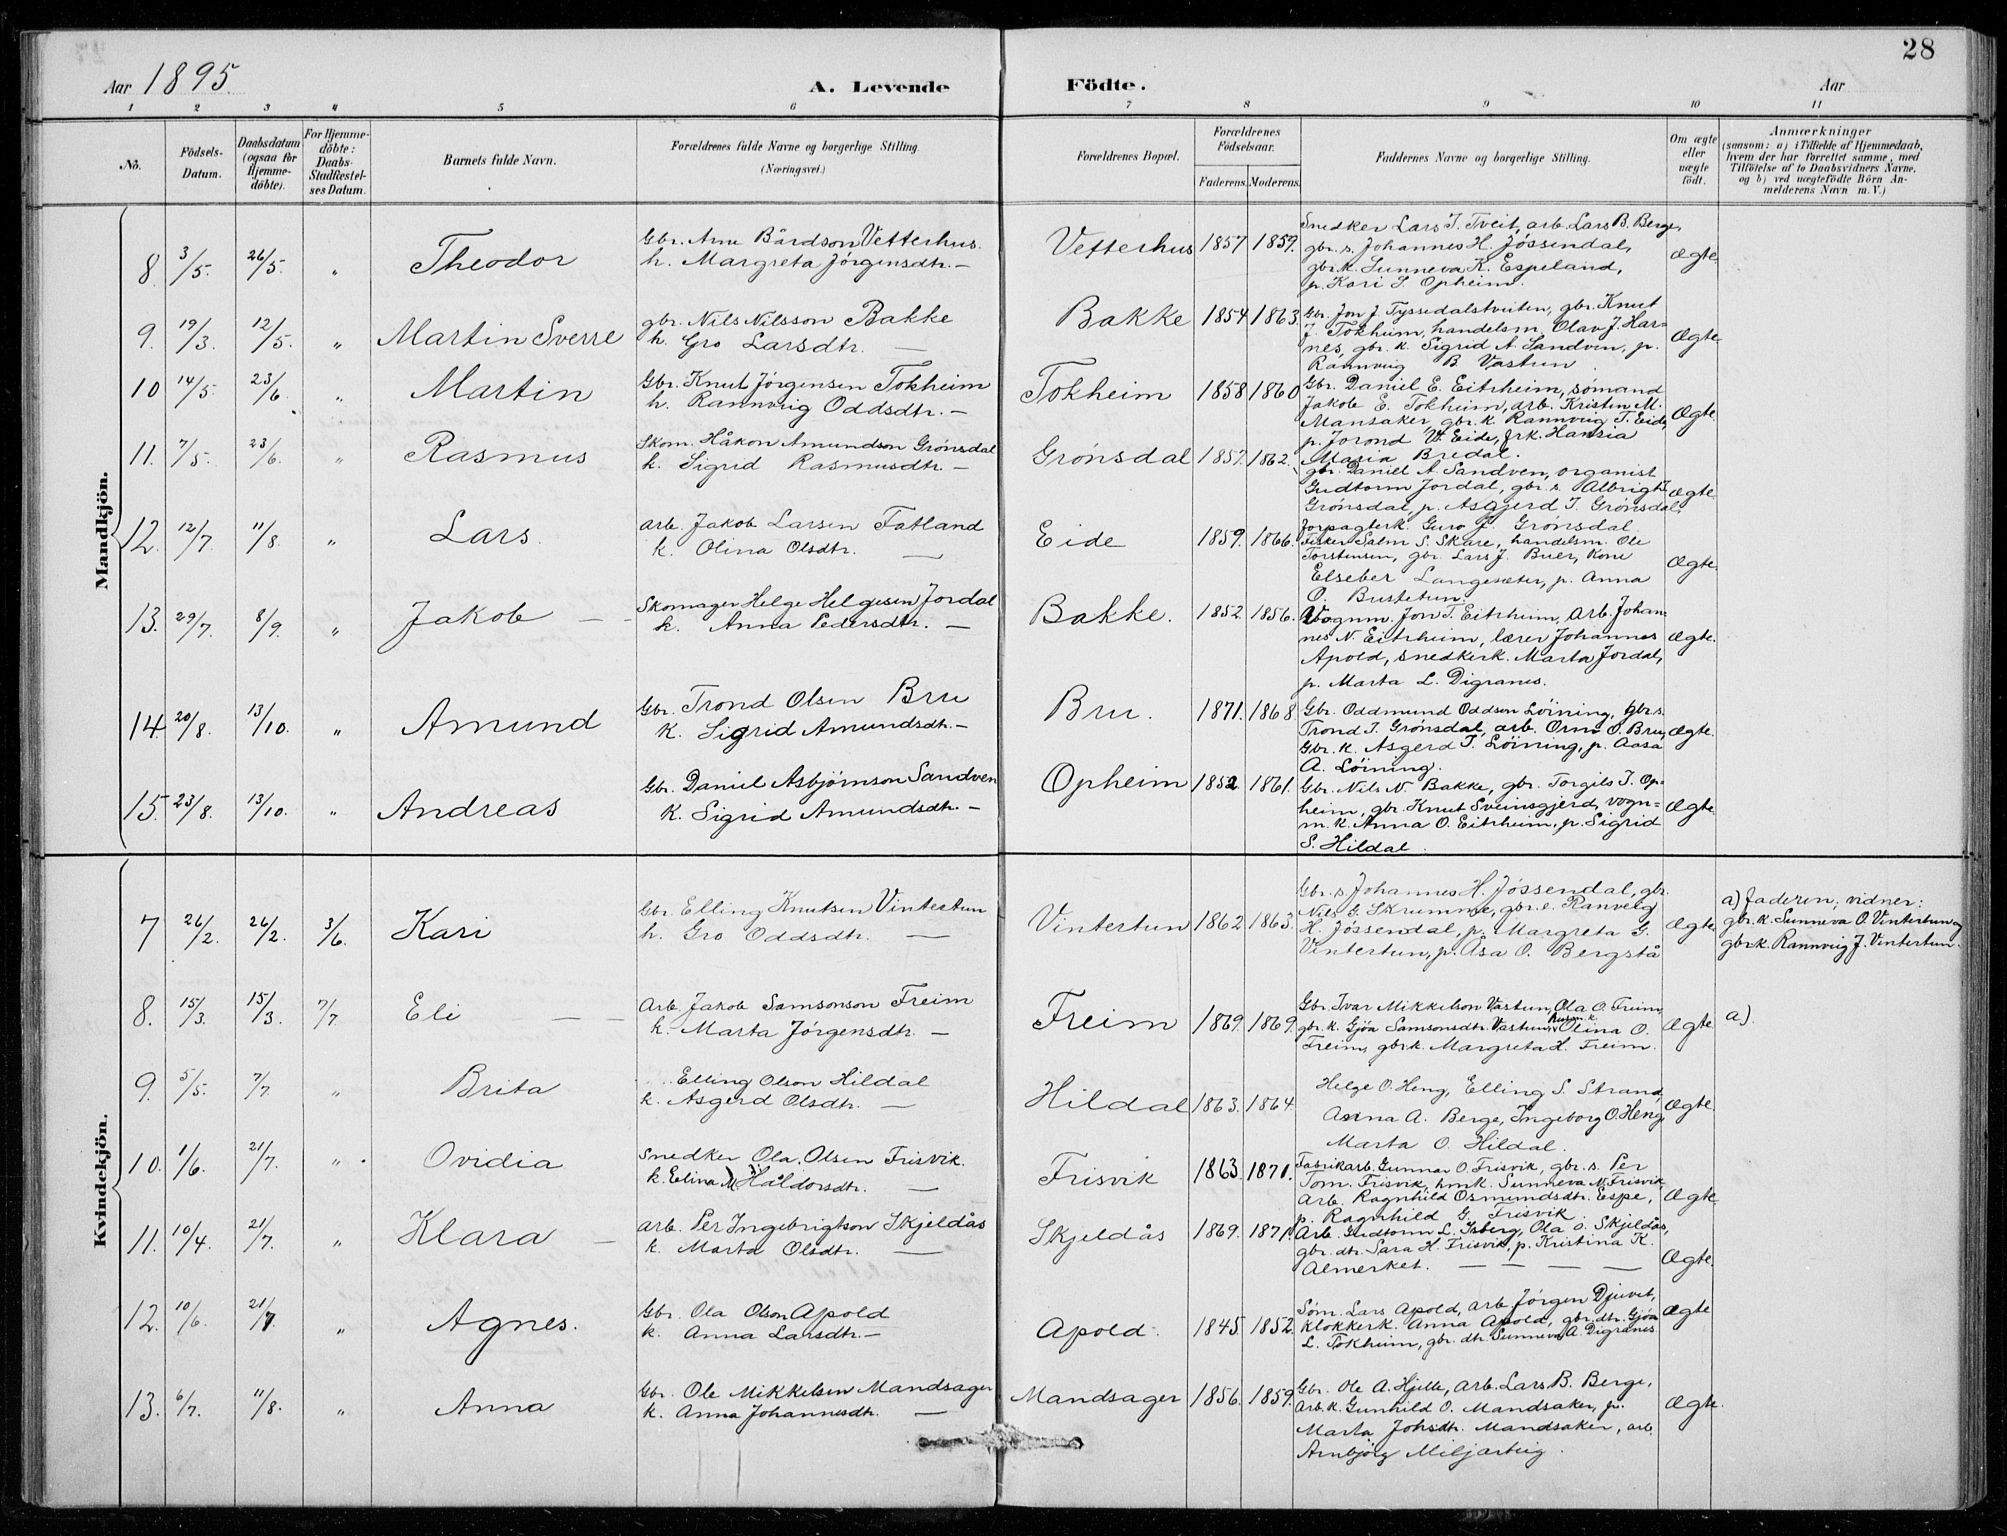 28
Aar 1895.
A. Levende Födte.
Aar
1 2 3 4 5 6 7 8 9 10 11
No.
Födsels-Datum.
Daabsdatum (ogsaa for Hjemme-döbte).
For Hjemme-döbte: Daabs-Stadfæstel-ses Datum.
Barnets fulde Navn.
Forældrenes fulde Navne og borgerlige Stilling. (Næringsvei.)
Forældrenes Bopæl.
Forældrenes Födselsaar.
Faderens. Moderens.
Faddernes Navne og borgerlige Stilling.
Om ægte eller uægte födt.
Anmærkninger
(saasom: a) i Tilfælde af Hjemmedaab,
hvem der har forrettet samme, med
Tilföielse af to Daabsvidners Navne,
og b) ved uægtefödte Börn An-
melderens Navn m. V.)
Mandkjön.
8. 3/5. 26/5. " Theodor
Gbr. Arne Bårdson Vetterhus.
h. Margreta Jörgensdtr. —
Vetterhus 1857 1859.
Snedker Lars T. Tveit, arb. Lars B. Berge,
gbr. s. Johannes H. Jøssendal,
gbr.k. Sunneva K. Espeland,
p. Kari S. Opheim.
Ægte.
9. 19/3. 12/5. " Martin Sverre
gbr. Nils Nilsson Bakke
h. Gro Larsdtr. —
Bakke 1854 1863.
Gbr. Jon J. Tyssedalstveiten, gbr. Knut
J. Tokheim, handelsm. Olav J. Har-
nes, gbr. k. Sigrid A. Sandven, p.
Rannveig B. Vastun.
Ægte
10 14/5. 23/6. " Martin
Gbr. Knut Jörgensen Tokheim
h. Rannveig Oddsdtr. —
Tokheim 1858 1860
Gbr. Daniel E. Eitrheim, sömand
Jakob E. Tokheim, arb. Kristen M.
Mansaker, gbr. k. Rannveig T. Eide,
p. Jorond W. Eide, frk. Hansia
Maria Bredal.
Ægte.
11. 7/5. 23/6. " Rasmus
Skom. Håkon Amundson Grönsdal
k. Sigrid Rasmusdtr. —
Grönsdal 1857. 1862.
gbr. Daniel A. Sandven, organist
Gudtorm Jordal, gbr. s. Albrigt J.
Grönsdal, p. Asgjerd T. Grönsdal,
forpagterk. Guro J. Grönsdal.
Ægte.
12. 12/7. 11/8. " Lars.
arb. Jakob Larsen Fatland
k. Olina Olsdtr. —
Eide 1859. 1866.
Fisker Salm. S. Skare, handelsm. Ole
Torstensen, gbr. Lars J. Buer, Kone
Elseber Langesæter, p. Anna
O. Bustetun.
Ægte.
13. 29/7. 8/9. " Jakob —
Skomager Helge Helgesen Jordal
k. Anna Pedersdtr. —
Bakke. 1852. 1856.
Vognm. Jon T. Eitrheim, arb. Johan-
nes N. Eitrheim, lærer Johannes
Apold, snedkerk. Marta Jordal,
p. Marta L. Digranes.
Ægte.
14. 20/8. 13/10. " Amund
Gbr. Trond Olsen Bru
k. Sigrid Amundsdtr. —
Bru. 1871. 1868.
Gbr. Oddmund Oddson Löining, gbr.s.
Trond T. Grönsdal, arb. Orm O. Bru,
Gbr. k. Asgerd T. Löining, p. Aasa
A. Löining.
Ægte.
15. 23/8. 13/10. " Andreas
Gbr. Daniel Asbjörnson Sandven
K. Sigrid Amundsdtr. —
Opheim 1852 1861.
Gbr. Nils N. Bakke, gbr. Torgils T. Op-
heim, gbr. Knut Sveinsgjerd, vogn-
m. k. Anna O. Eitrheim, p. Sigrid
S. Hildal.
Ægte.
Kvindekjön.
7 26/2. 26/2. 3/6. Kari
Gbr. Elling Knutsen Vintertun
h. Gro Oddsdtr. —
Vintertun 1862 1863.
Gbr. s. Johannes H. Jøssendal, gbr.
Nils G. Skrumme, gbr. e. Ranveig
H. Jøssendal, p. Margreta G.
Vintertun, p. Åsa O. Bergstå
Ægte.
a) faderen; vidner:
gbr. k. Sunneva O. Vintertun og
gbr.k. Rannveig J. Vintertun.
8. 15/3. 15/3. 7/7. Eli — —
Arb. Jakob Samsonson Freim
k. Marta Jörgensdtr. —
Freim 1869. 1869.
Gbr. Ivar Mikkelson Vastun, Ola O. Freim,
gbr. k. Gjöa Samsonsdtr. Vastun, husm.k. Olina O.
Freim, gbr.k. Margreta H. Freim.
Ægte a).
9. 5/5. 7/7. " Brita
Elling Olson Hildal
k. Asgerd Olsdtr. —
Hildal 1863. 1864
Helge O. Heng, Elling S. Strand,
Anna A. Berge, Ingeborg O. Heng,
Marta O. Hildal.
Ægte.
10. 1/6. 21/7. " Ovidia
Snedker Ola Olsen Frisvik.
k. Elina M. Håldorsdtr. —
Frisvik 1863. 1871.
Fabrikarb. Gunnar O. Frisvik, gbr. s. Per
Tom. Frisvik, hmk. Sunneva N. Frisvik,
arb. Ragnhild Osmundsdtr. Espe,
p. Ragnhild G. Frisvik.
Ægte
11. 10/4. 21/7. " Klara —
arb. Per Ingebrigtson Skjeldås
k. Marta Olsdtr. —
Skjeldås 1869. 1871.
Arb. Gudtorm L. Isberg, Ola O. Skjeldås,
gbr. dtr. Sara H. Frisvik, p. Kristina K.
Almerket. — — — —
Ægte.
12. 10/6. 21/7. " Agnes.
Gbr. Ola Olson Apold
k. Anna Larsdtr. —
Apold. 1845. 1852.
Söm. Lars Apold, arb. Jörgen Djuvet,
klokkerk. Anna Apold, gbr. dtr. Gjöa
L. Tokheim, gbr. dtr. Sunneva A. Digranes
Ægte
13. 6/7. 11/8. " Anna
Gbr. Ole Mikkelsen Mandsager
k. Anna Johannesdtr. —
Mandsager 1856. 1859.
Gbr. Ole A. Hjelle, arb. Lars B. Berge,
Arb. k. Gunhild O. Mandsaker, p.
Marta Johsdtr. Mandsaker, arb.
Arnbjörg Miljarteig.
Ægte.